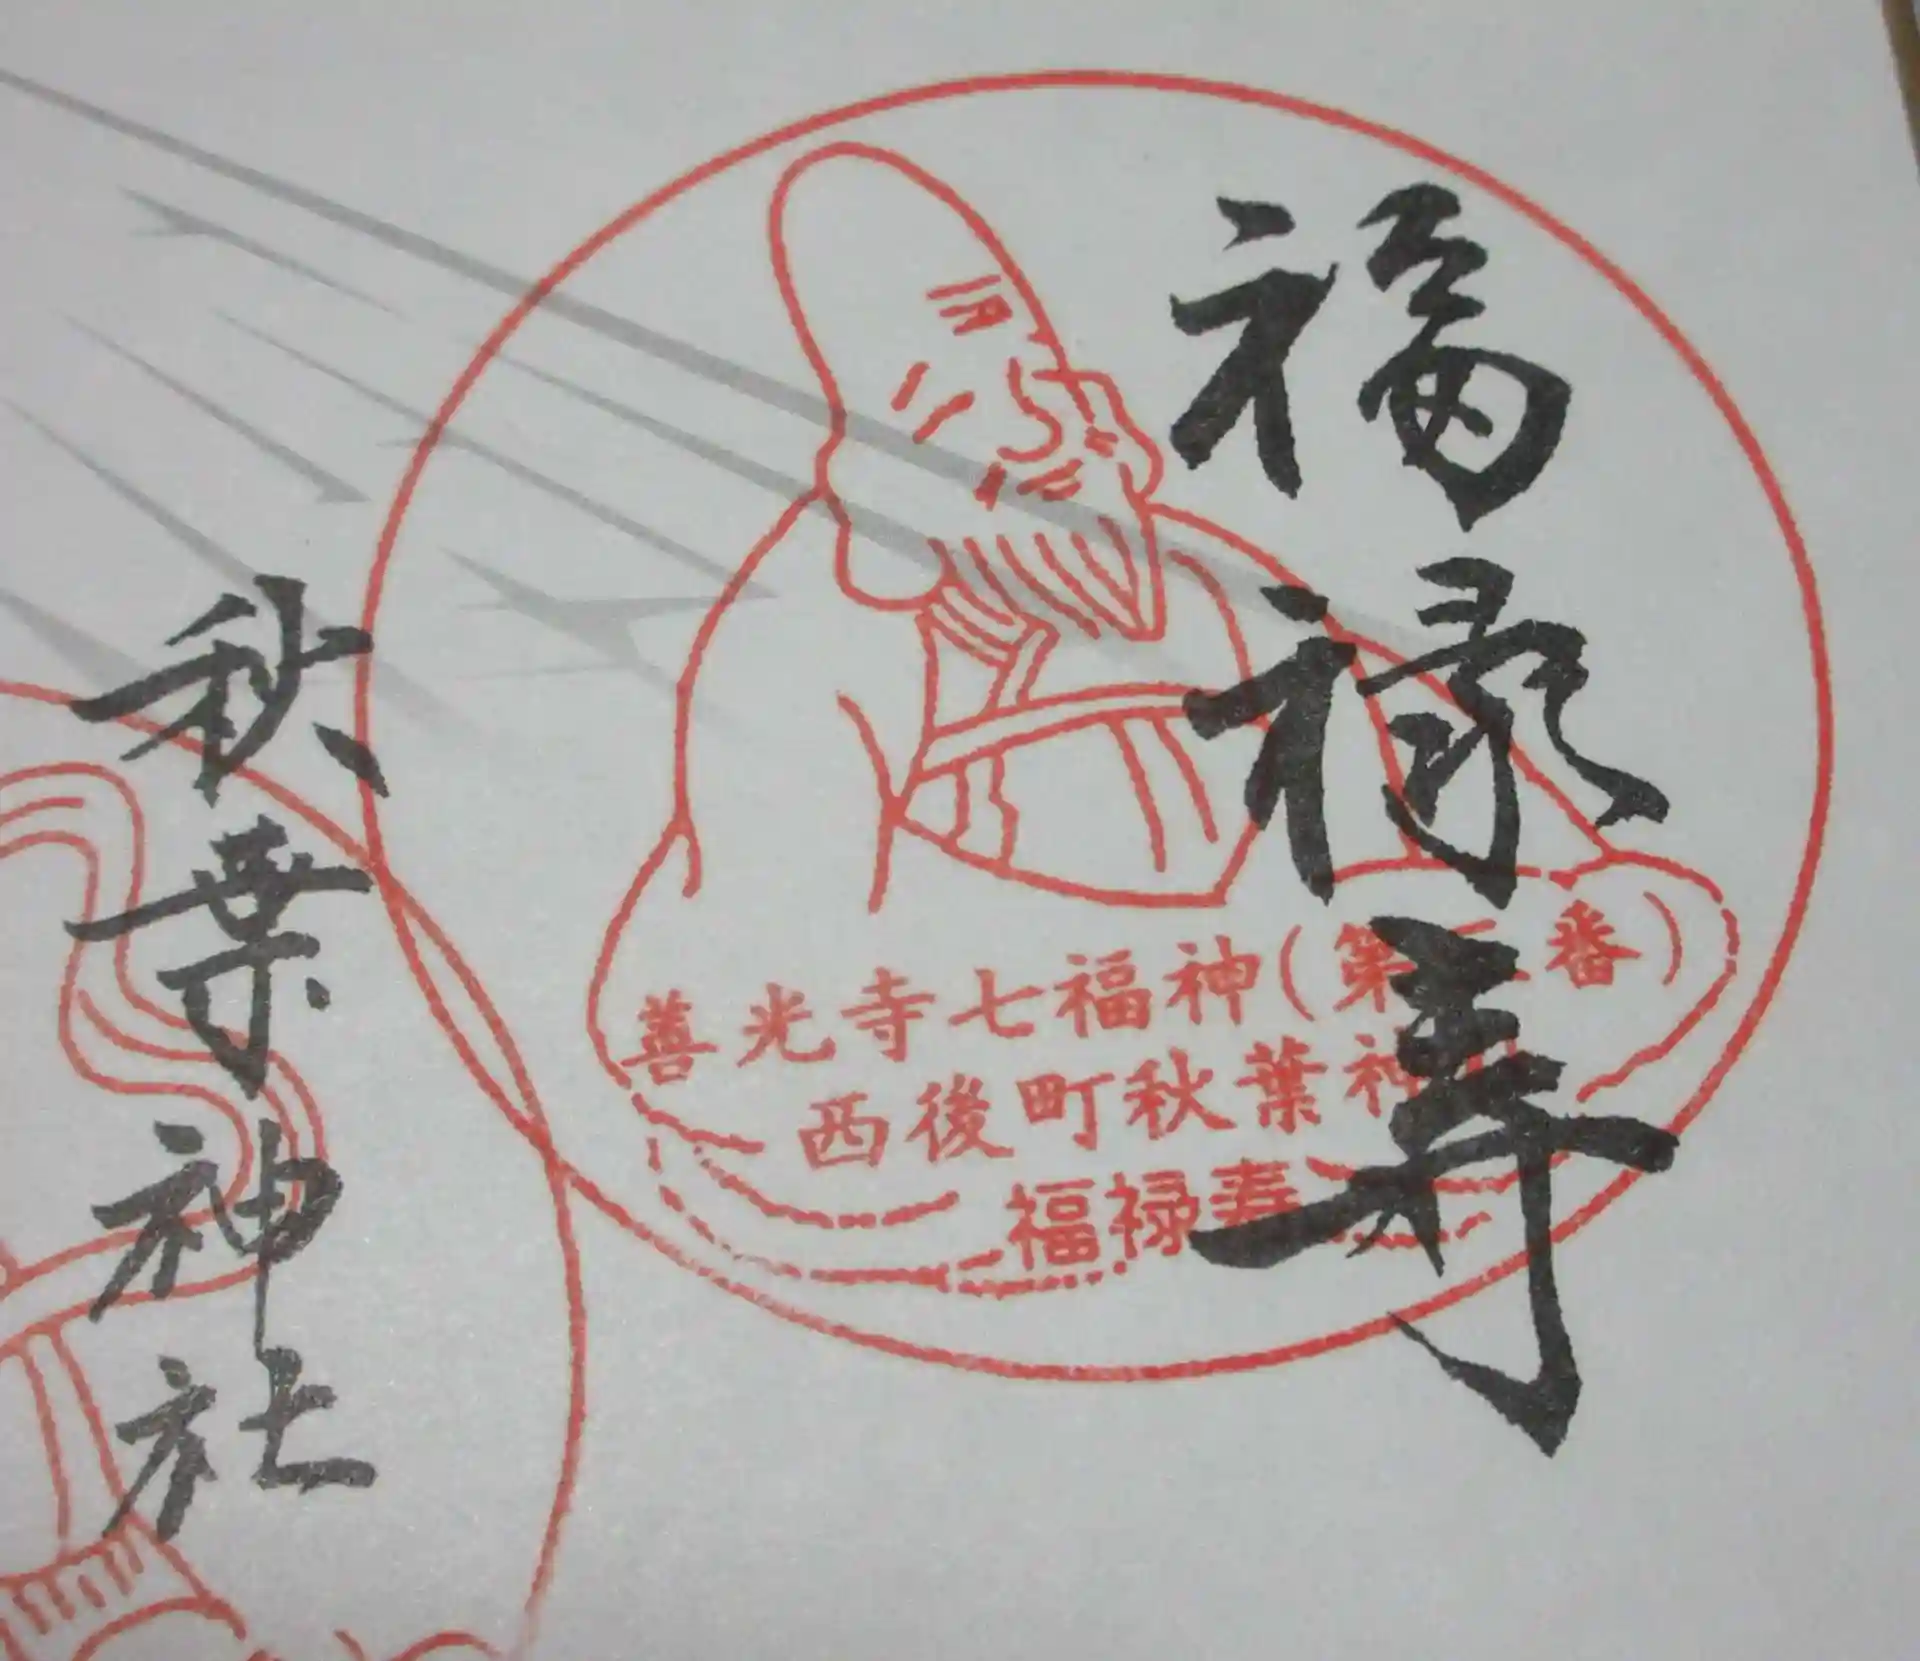 福禄寿
善光寺七福神(第三番)
西後町秋葉神
福禄寿
秋葉神社